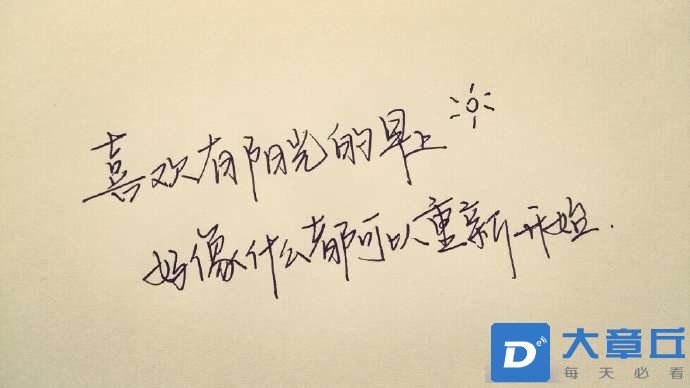 喜欢有阳光的早上
好像什么都可以重新开始.
D
大章丘
每天必看